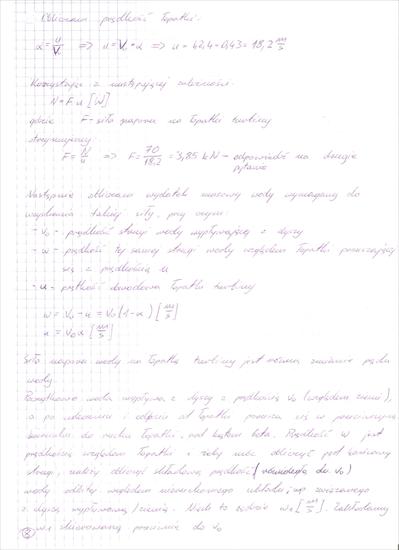 Obliczam prędkość łopatki:
α = u/V₀ => u = V₀·α => u = 42,4·0,43 = 18,2 m/s
Korzystając z następującej zależności:
N = F·u [W]
gdzie F - siła naporu na łopatki turbiny
otrzymujemy:
F = N/u => F = 70/18,2 = 3,85 kN - odpowiedź na drugie
pytanie
Następnie obliczam wydatek masowy wody wymagany do
wywołania takiej siły, przy czym:
- v₀ - prędkość strugi wody wypływającej z dyszy
- w - prędkość tej samej strugi wody względem łopatki poruszającej
się z prędkością u
- u - prędkość obwodowa łopatki turbiny
w = v₀ - u = v₀(1-α) [m/s]
u = v₀α [m/s]
Siła naporu wody na łopatkę turbiny jest równa zmianie pędu
wody.
Początkowo woda wypływa z dyszy z prędkością v₀ (względem ziemi),
a po uderzeniu i odbiciu od łopatki porusza się w przeciwnym
kierunku do ruchu łopatki, pod kątem beta. Prędkość w jest
prędkością względem łopatki i żeby móc obliczyć pęd końcowy
strugi, należy obliczyć składową prędkości (równoległą do v₀)
wody odbitej względem nieruchomego układu, np. związanego
z dyszą wypływową/ziemią. Niech to będzie w₁ [m/s]. Zakładamy
w₁ skierowaną przeciwnie do v₀